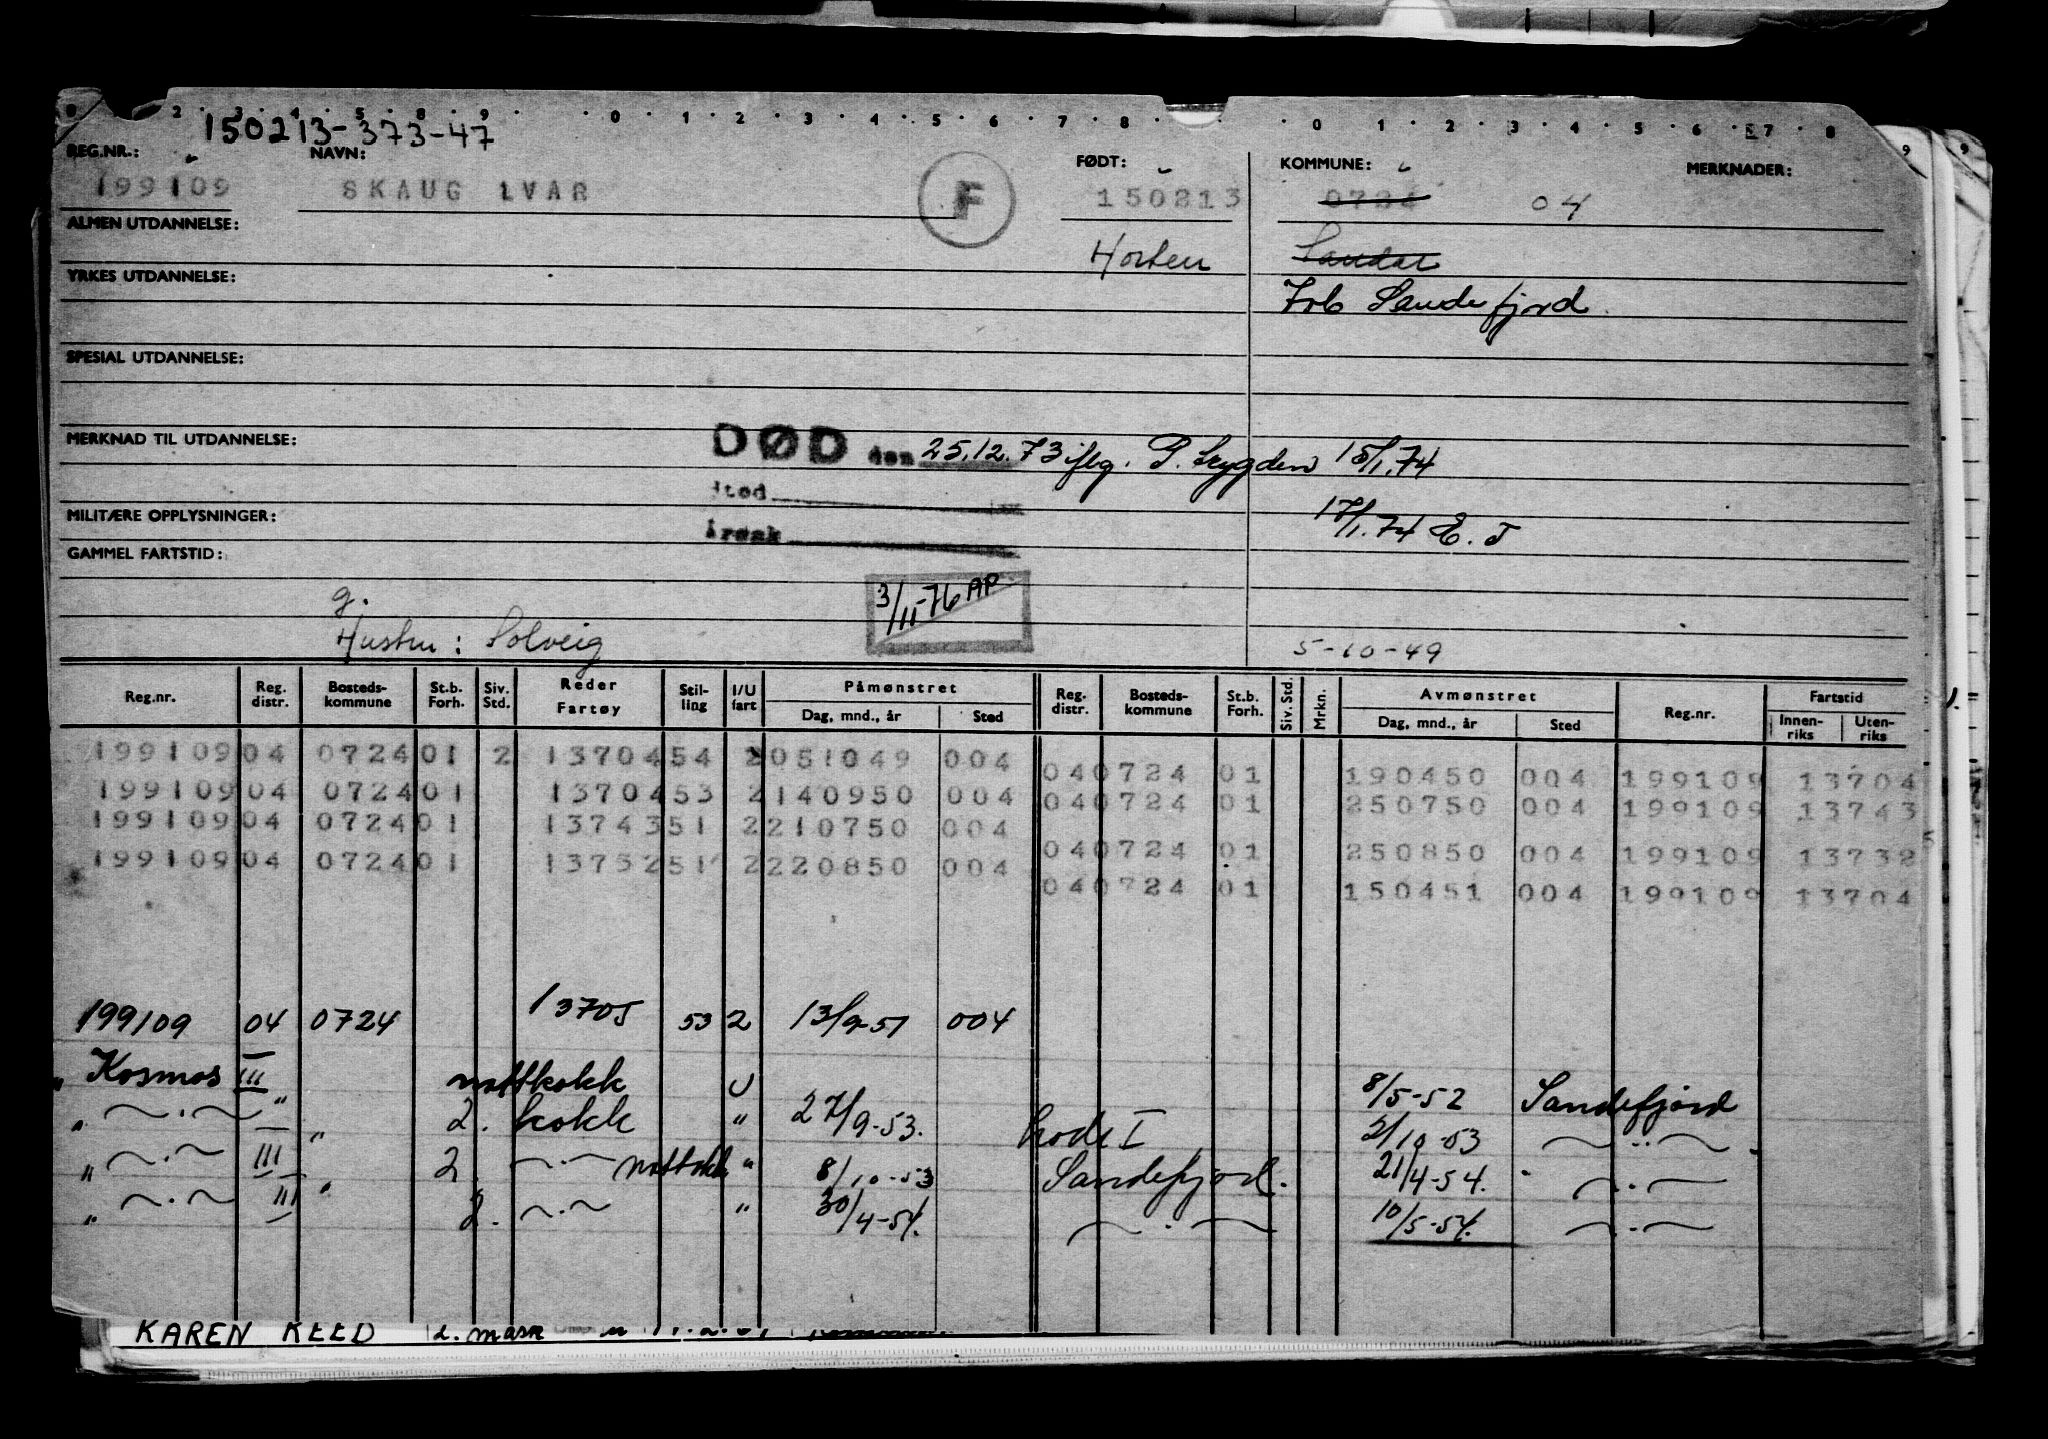 0 2 3 4 5 8 9 0 1 2 3 4 5 6 7 8 0 1 2 3 4 5 6 7 8 9
150213-373-47
REG.NR.: NAVN: FØDT: KOMMUNE: MERKNADER:
199109 SKAUG IVAR F 150213 0724 04
ALMEN UTDANNELSE: Horten Sandar
YRKES UTDANNELSE: Sandefjord
SPESIAL UTDANNELSE:
MERKNAD TIL UTDANNELSE: DØD den 25.12.73 iflg. P. trygden 15/1.74
Sted
MILITÆRE OPPLYSNINGER: Årsak 17/1.74 E.T
GAMMEL FARTSTID:
g. 3/11-76 AP
Hustru: Solveig 5-10-49
Reg.nr. Reg. distr. Bosteds-kommune St.b. Forh. Siv. Std. Reder Fartøy Stil-ling I/U fart Påmønstret Dag, mnd., år Sted Reg. distr. Bosteds-kommune St.b. Forh. Siv. Std. Mrkn. Avmønstret Dag, mnd., år Sted Reg.nr. Fartstid Innen-riks Uten-riks
199109 04 0724 01 2 13704 54 2 051049 004
04 0724 01 190450 004 199109 13704
199109 04 0724 01 13704 53 2 140950 004
04 0724 01 250750 004 199109 13743
199109 04 0724 01 13743 51 2 210750 004
04 0724 01 250850 004 199109 13732
199109 04 0724 01 13732 51 2 220850 004
04 0724 01 150451 004 199109 13704
199109 04 0724 13705 53 2 13/9-51 004
" Kosmos III nattkokk U 8/5-52 Sandefjord
" —"— " 2. kokk " 27/9-53. kode I 2/10-53 —"—
" —"— III " 2. —"— nattkokk " 8/10-53 Sandefjord. 21/4-54. —"—
" —"— III " 2. —"— " 30/4-54. —"— 10/5-54. —"—
KAREN REED 2. mask